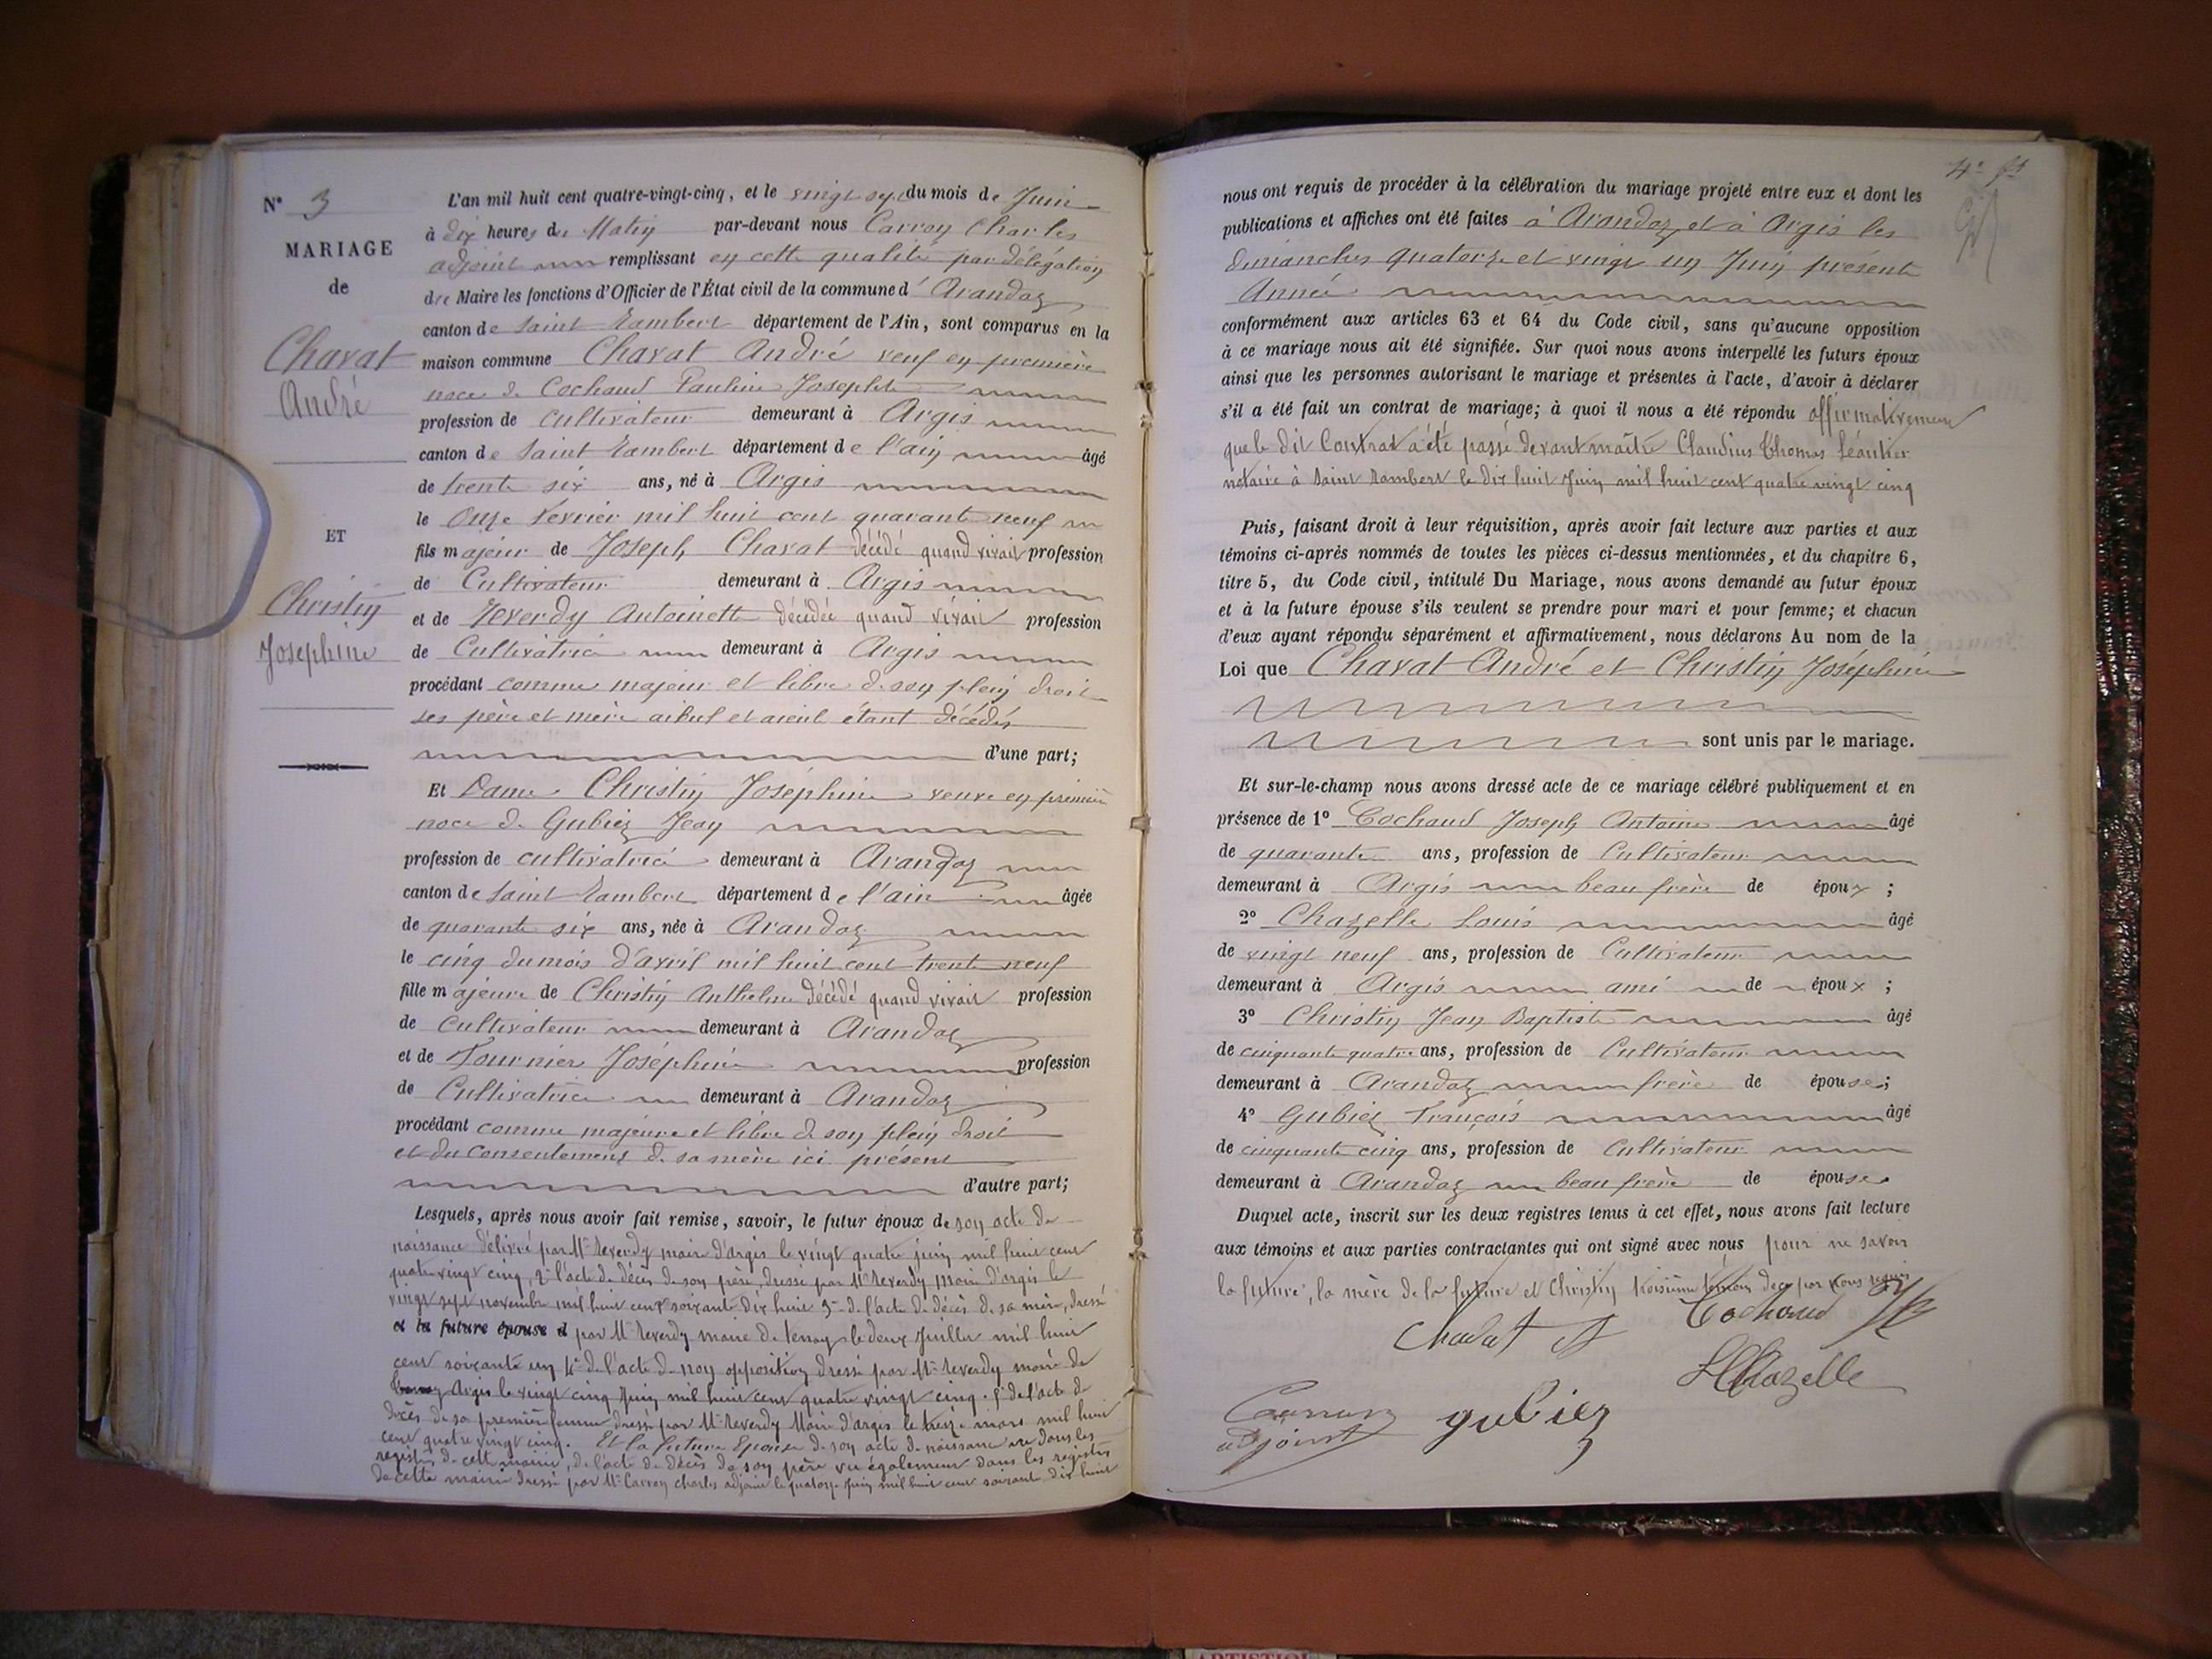 N° 3
MARIAGE
de
Chavat
André
ET
Christin
Josephine
L'an mil huit cent quatre-vingt-cinq, et le vingt sept du mois de Juin
à dix heures du Matin par-devant nous Carron Charles
adjoint remplissant en cette qualité par délégation
du Maire les fonctions d'Officier de l'État civil de la commune d'Arandaz
canton de Saint Rambert département de l'Ain, sont comparus en la
maison commune Chavat André veuf en première
noce de Cochaud Pauline Josephte
profession de cultivateur demeurant à Argis
canton de Saint Rambert département de l'ain âgé
de trente six ans, né à Argis
le Onze Fevrier mil huit cent quarante neuf
fils majeur de Joseph Chavat décédé quand vivait profession
de Cultivateur demeurant à Argis
et de Reverdy Antoinette décédée quand vivait profession
de Cultivatrice demeurant à Argis
procédant comme majeur et libre de son plein droit
ses père et mère aïeul et aïeul étant décédés
d'une part;
Et Dame Christin Joséphine veuve en première
noce de Gubiez Jean
profession de cultivatrice demeurant à Arandaz
canton de Saint Rambert département de l'ain âgée
de quarante six ans, née à Arandaz
le cinq du mois d'avril mil huit cent trente neuf
fille majeure de Christin Anthelme décédé quand vivait profession
de cultivateur demeurant à Arandaz
et de Fournier Joséphine profession
de Cultivatrice demeurant à Arandaz
procédant comme majeure et libre de son plein droit
et du consentement de sa mère ici présent
d'autre part;
Lesquels, après nous avoir fait remise, savoir, le futur époux de son acte de
naissance délivré par Mr Reverdy maire d'argis le vingt quatre juin mil huit cent
quatre vingt cinq, 2° l'acte de décès de son père, dressé par Mr Reverdy maire d'argis le
vingt sept novembre mil huit cent soixante dix huit 3° de l'acte de décès de sa mère, dressé
et la future épouse d par Mr Reverdy maire de tenay le deux Juillet mil huit
cent soixante un 4° de l'acte de non opposition dressé par Mr Reverdy maire de
Argis le vingt cinq Juin mil huit cent quatre vingt cinq. 5° de l'acte de
décès de sa première femme dressé par Mr Reverdy Maire d'argis le treize mars mil huit
cent quatre vingt cinq. Et la future Epouse de son acte de naissance vu dans les
registres de cette mairie, de l'acte de décès de son père vu également dans les registres
de cette mairie dressé par Mr Carron Charles adjoint le quatorze Juin mil huit cent soixante dix huit
nous ont requis de procéder à la célébration du mariage projeté entre eux et dont les
publications et affiches ont été faites à Arandaz et à Argis les
dimanches quatorze et vingt un Juin présente
Année
conformément aux articles 63 et 64 du Code civil, sans qu'aucune opposition
à ce mariage nous ait été signifiée. Sur quoi nous avons interpellé les futurs époux
ainsi que les personnes autorisant le mariage et présentes à l'acte, d'avoir à déclarer
s'il a été fait un contrat de mariage; à quoi il nous a été répondu affirmativement
que le dit Contrat a été passé devant maître Claudius Thomas Léautier
notaire à Saint Rambert le dix huit Juin mil huit cent quatre vingt cinq
Puis, faisant droit à leur réquisition, après avoir fait lecture aux parties et aux
témoins ci-après nommés de toutes les pièces ci-dessus mentionnées, et du chapitre 6,
titre 5, du Code civil, intitulé Du Mariage, nous avons demandé au futur époux
et à la future épouse s'ils veulent se prendre pour mari et pour femme; et chacun
d'eux ayant répondu séparément et affirmativement, nous déclarons Au nom de la
Loi que Chavat André et Christin Joséphine
sont unis par le mariage.
Et sur-le-champ nous avons dressé acte de ce mariage célébré publiquement et en
présence de 1° Cochaud Joseph Antoine âgé
de quarante ans, profession de Cultivateur
demeurant à Argis beau frère de époux ;
2° Chazelle Louis âgé
de vingt neuf ans, profession de Cultivateur
demeurant à Argis ami de époux ;
3° Christin Jean Baptiste âgé
de cinquante quatre ans, profession de Cultivateur
demeurant à Arandaz frère de épouse;
4° Gubiez François âgé
de cinquante cinq ans, profession de Cultivateur
demeurant à Arandaz beau frère de épouse
Duquel acte, inscrit sur les deux registres tenus à cet effet, nous avons fait lecture
aux témoins et aux parties contractantes qui ont signé avec nous pour ne savoir
la future, la mère de la future et Christin troisième témoin de ce par nous requis
Chavat Cochaud
LChazelle
Carron gubiez
adjoint